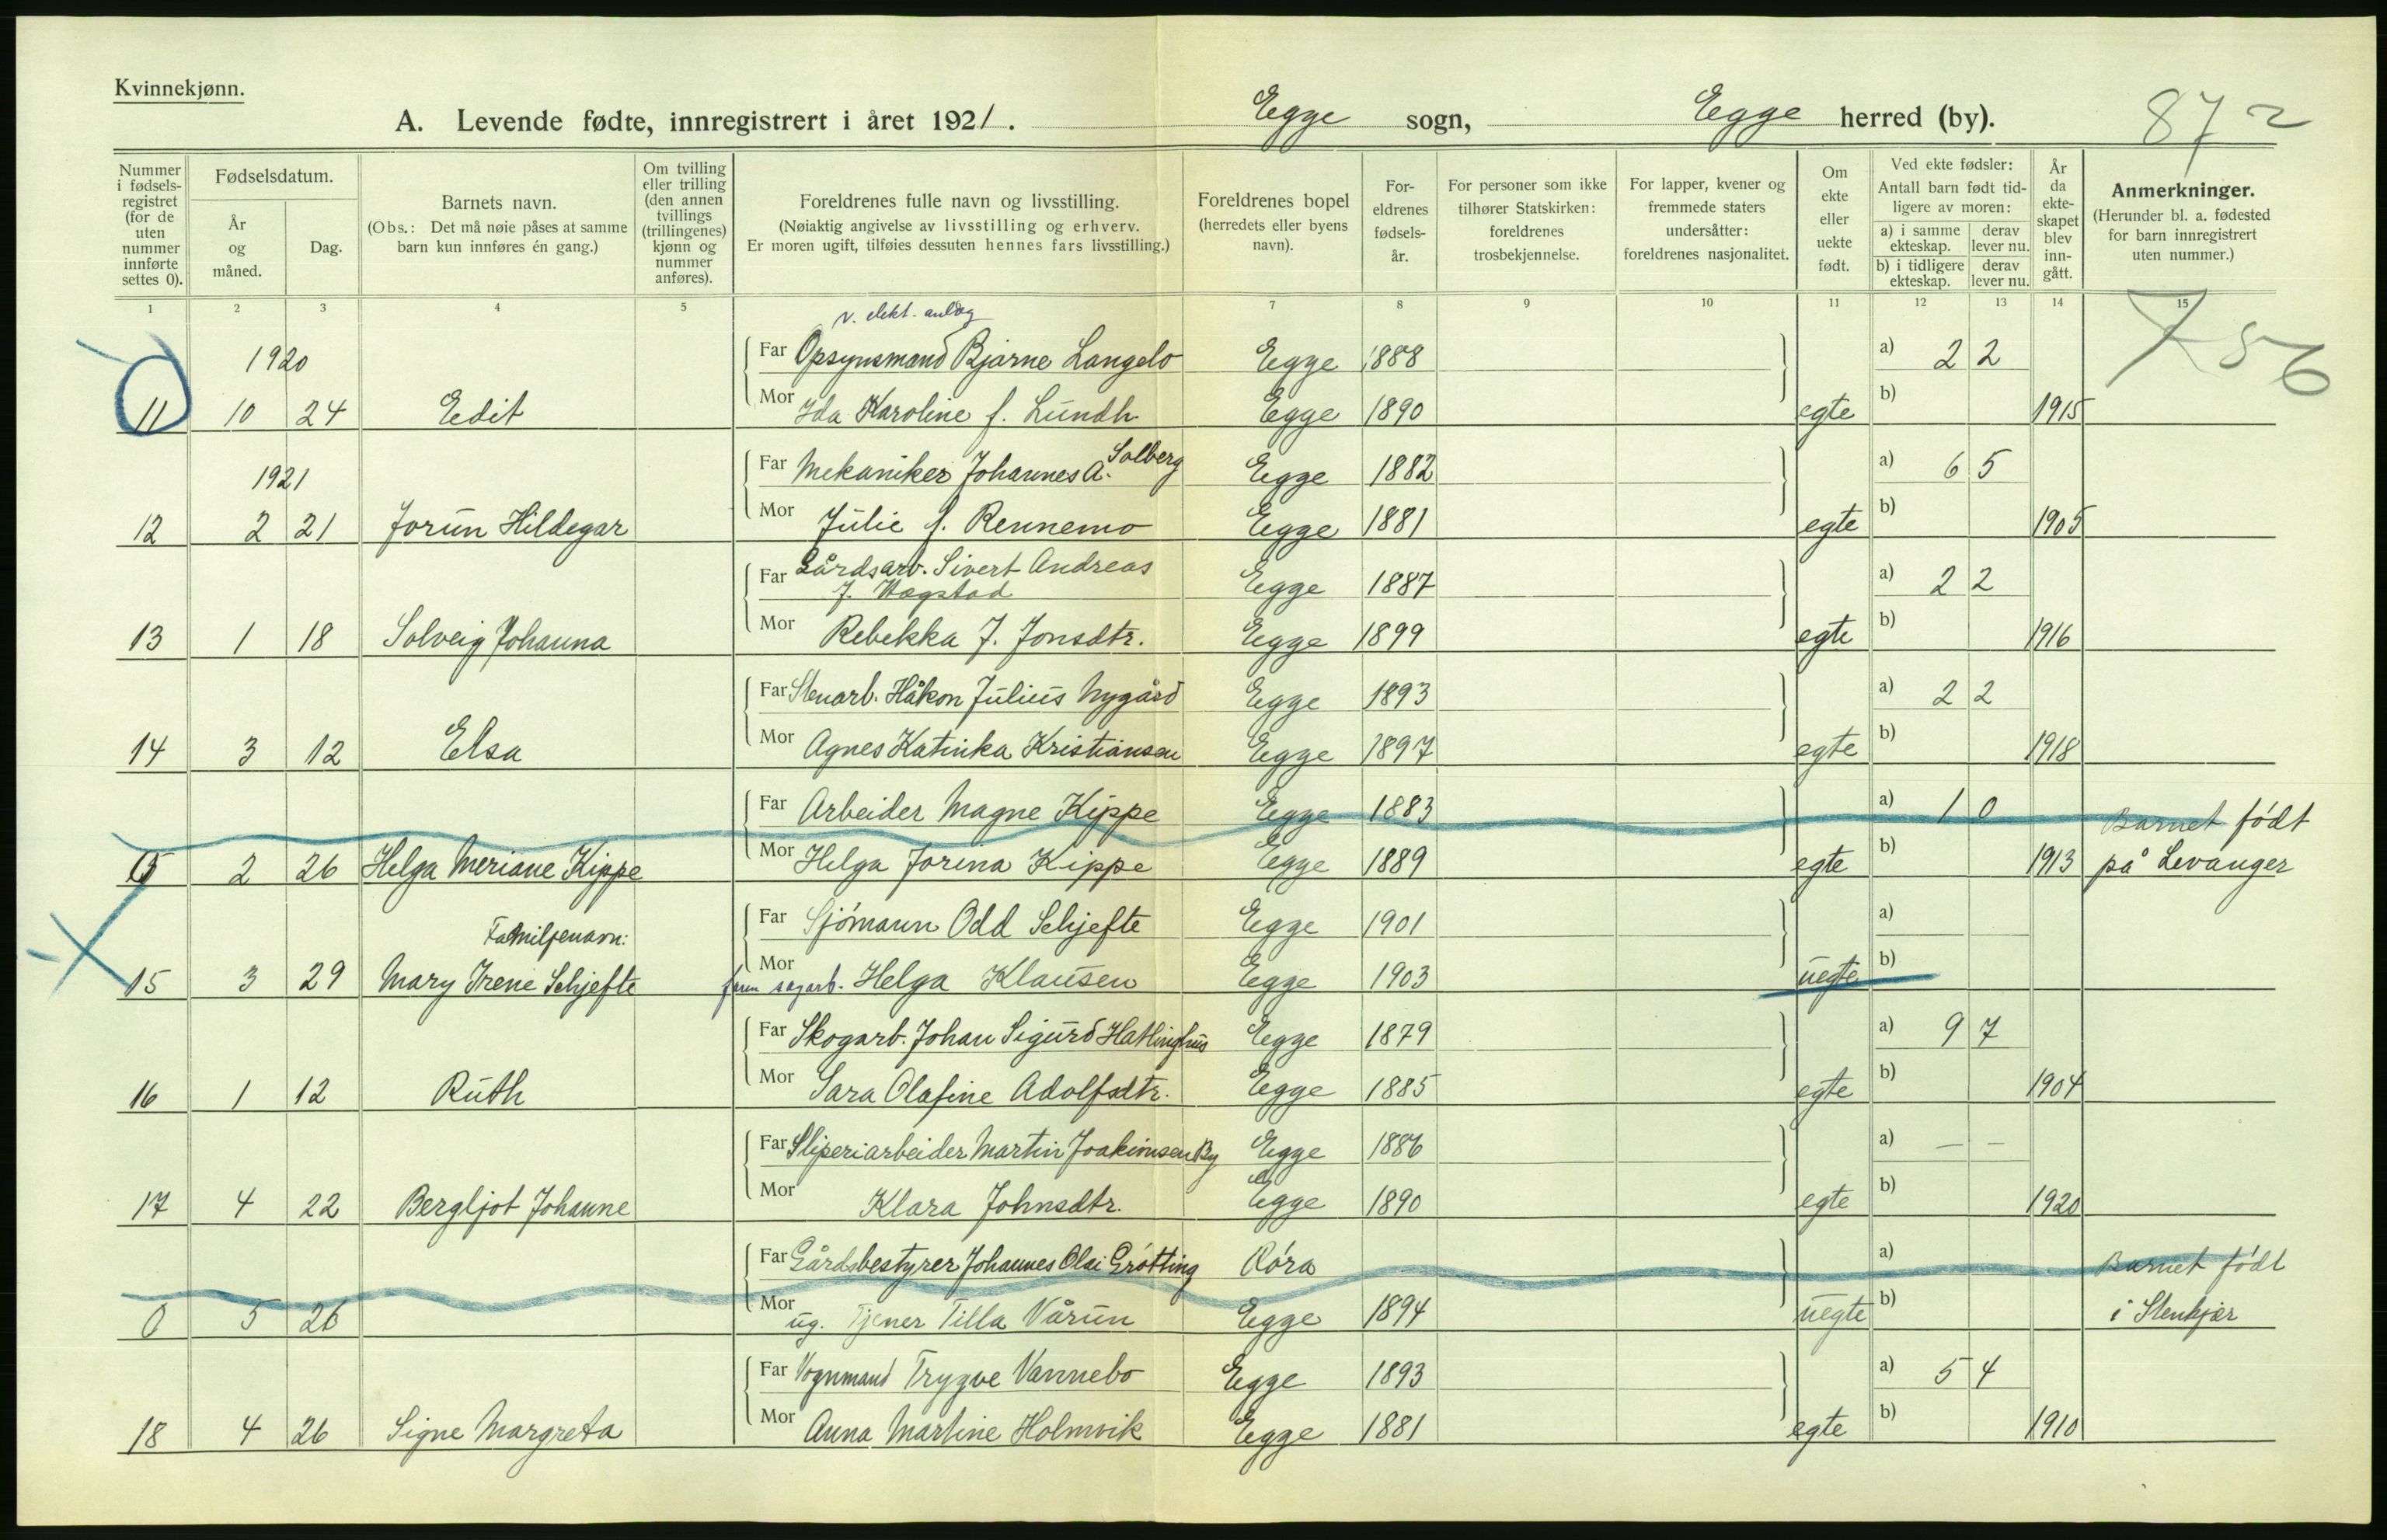 Kvinnekjønn.
A. Levende fødte, innregistrert i året 1921. Egge sogn, Egge herred (by). 872
Nummer i fødsels- registret (for de uten nummer innførte settes 0).
Fødselsdatum.
År og måned.
Dag.
Barnets navn.
(Obs.: Det må nøie påses at samme barn kun innføres én gang.)
Om tvilling eller trilling (den annen tvillings (trillingenes) kjønn og nummer anføres).
Foreldrenes fulle navn og livsstilling.
(Nøiaktig angivelse av livsstilling og erhverv. Er moren ugift, tilføies dessuten hennes fars livsstilling.)
Foreldrenes bopel (herredets eller byens navn).
For- eldrenes fødsels- år.
For personer som ikke tilhører Statskirken: foreldrenes trosbekjennelse.
For lapper, kvener og fremmede staters undersåtter: foreldrenes nasjonalitet.
Om ekte eller uekte født.
Ved ekte fødsler: Antall barn født tid- ligere av moren:
a) i samme ekteskap. derav lever nu.
b) i tidligere ekteskap. derav lever nu.
År da ekte- skapet blev inn- gått.
Anmerkninger.
(Herunder bl. a. fødested for barn innregistrert uten nummer.)
1 2 3 4 5 7 8 9 10 11 12 13 14 15
v. elekt. anlæg
1920 Far Opsynsmand Bjarne Langelo Egge 1888 a) 2 2 56
11 10 24 Edit Mor Ida Karoline f. Lundh Egge 1890 egte b) 1915
1921 Far Mekaniker Johannes A. Solberg Egge 1882 a) 6 5
12 2 21 Jorun Hildegar Mor Julie f. Rennemo Egge 1881 egte b) 1905
Far Gårdsarb. Sivert Andreas
J. Hagstad Egge 1887 a) 2 2
13 1 18 Solveig Johanna Mor Rebekka J. Jonsdtr. Egge 1899 egte b) 1916
Far Stenarb. Håkon Julius Nygård Egge 1893 a) 2 2
14 3 12 Elsa Mor Agnes Katinka Kristiansen Egge 1897 egte b) 1918
Far Arbeider Magne Kippe Egge 1883 a) 1 0 Barnet født
15 2 26 Helga Meriane Kippe Mor Helga Jorina Kippe Egge 1889 egte b) 1913 på Levanger
Familjenavn: Far Sjömann Odd Schjefte Egge 1901 a)
15 3 29 Mary Irene Schjefte Mor sagarb. Helga Klausen Egge 1903 uegte b)
Far Skogarb. Johan Sigurd Hatlinghus Egge 1879 a) 9 7
16 1 12 Ruth Mor Sara Olafine Adolfsdtr. Egge 1885 egte b) 1904
Far Sliperiarbeider Martin Joakimsen By Egge 1886 a) — —
17 4 22 Bergljot Johanne Mor Klara Johnsdtr. Egge 1890 egte b) 1920
Far Gårdsbestyrer Johannes Olai Grötting Röra a) Barnet födt
0 5 26 Mor ug. Tjener Tilla Vårun Egge 1894 uegte b) i Stenkjær
Far Vognmand Trygve Vannebo Egge 1893 a) 5 4
18 4 26 Signe Margreta Mor Anna Martine Holmvik Egge 1881 egte b) 1910